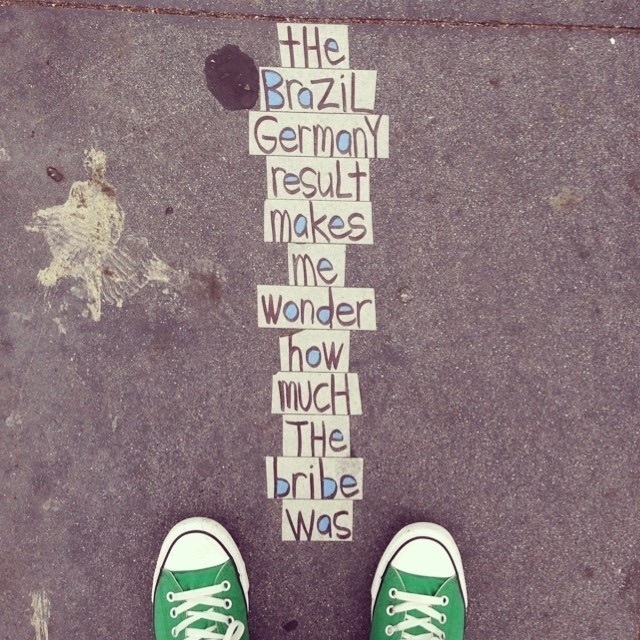 tHe
BraziL
GermanY
resuLt
makes
me
wonder
how
mucH
THe
bribe
was